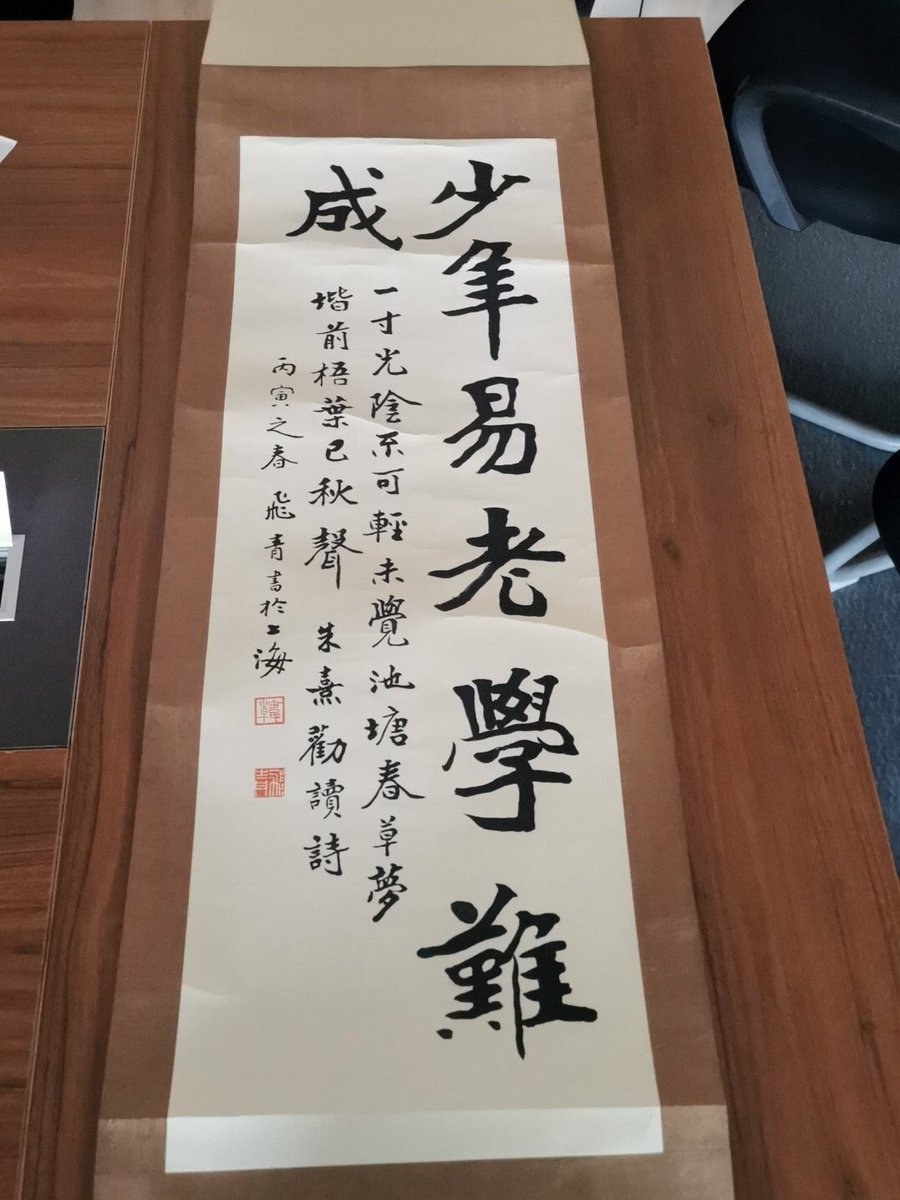 少年易老學難
成
一寸光陰不可輕未覺池塘春草夢
堦前梧葉已秋聲 朱熹勸讀詩
丙寅之春 飛青書於上海